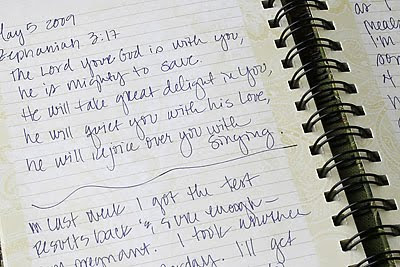 day 5 2009
Zephaniah 3:17
The Lord your God is with you,
he is mighty to save.
He will take great delight in you,
he will quiet you with his love,
he will rejoice over you with
singing.
last week I got the test
results back & sure enough-
pregnant. I took another
I'll get
as I
I'm